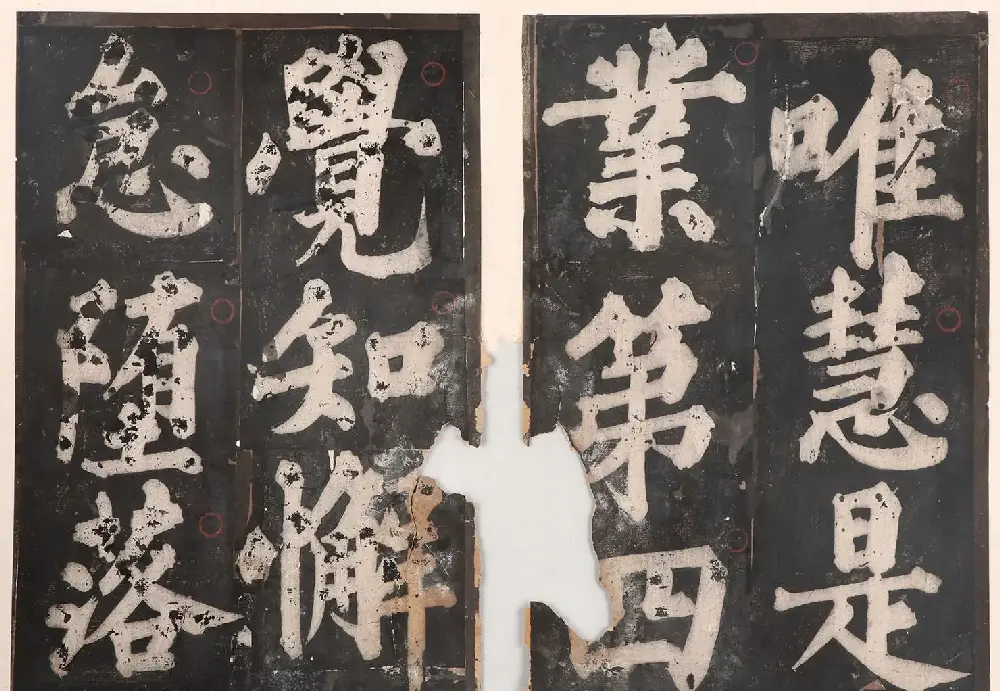 唯慧是
業第四
覺知懈
怠墮落